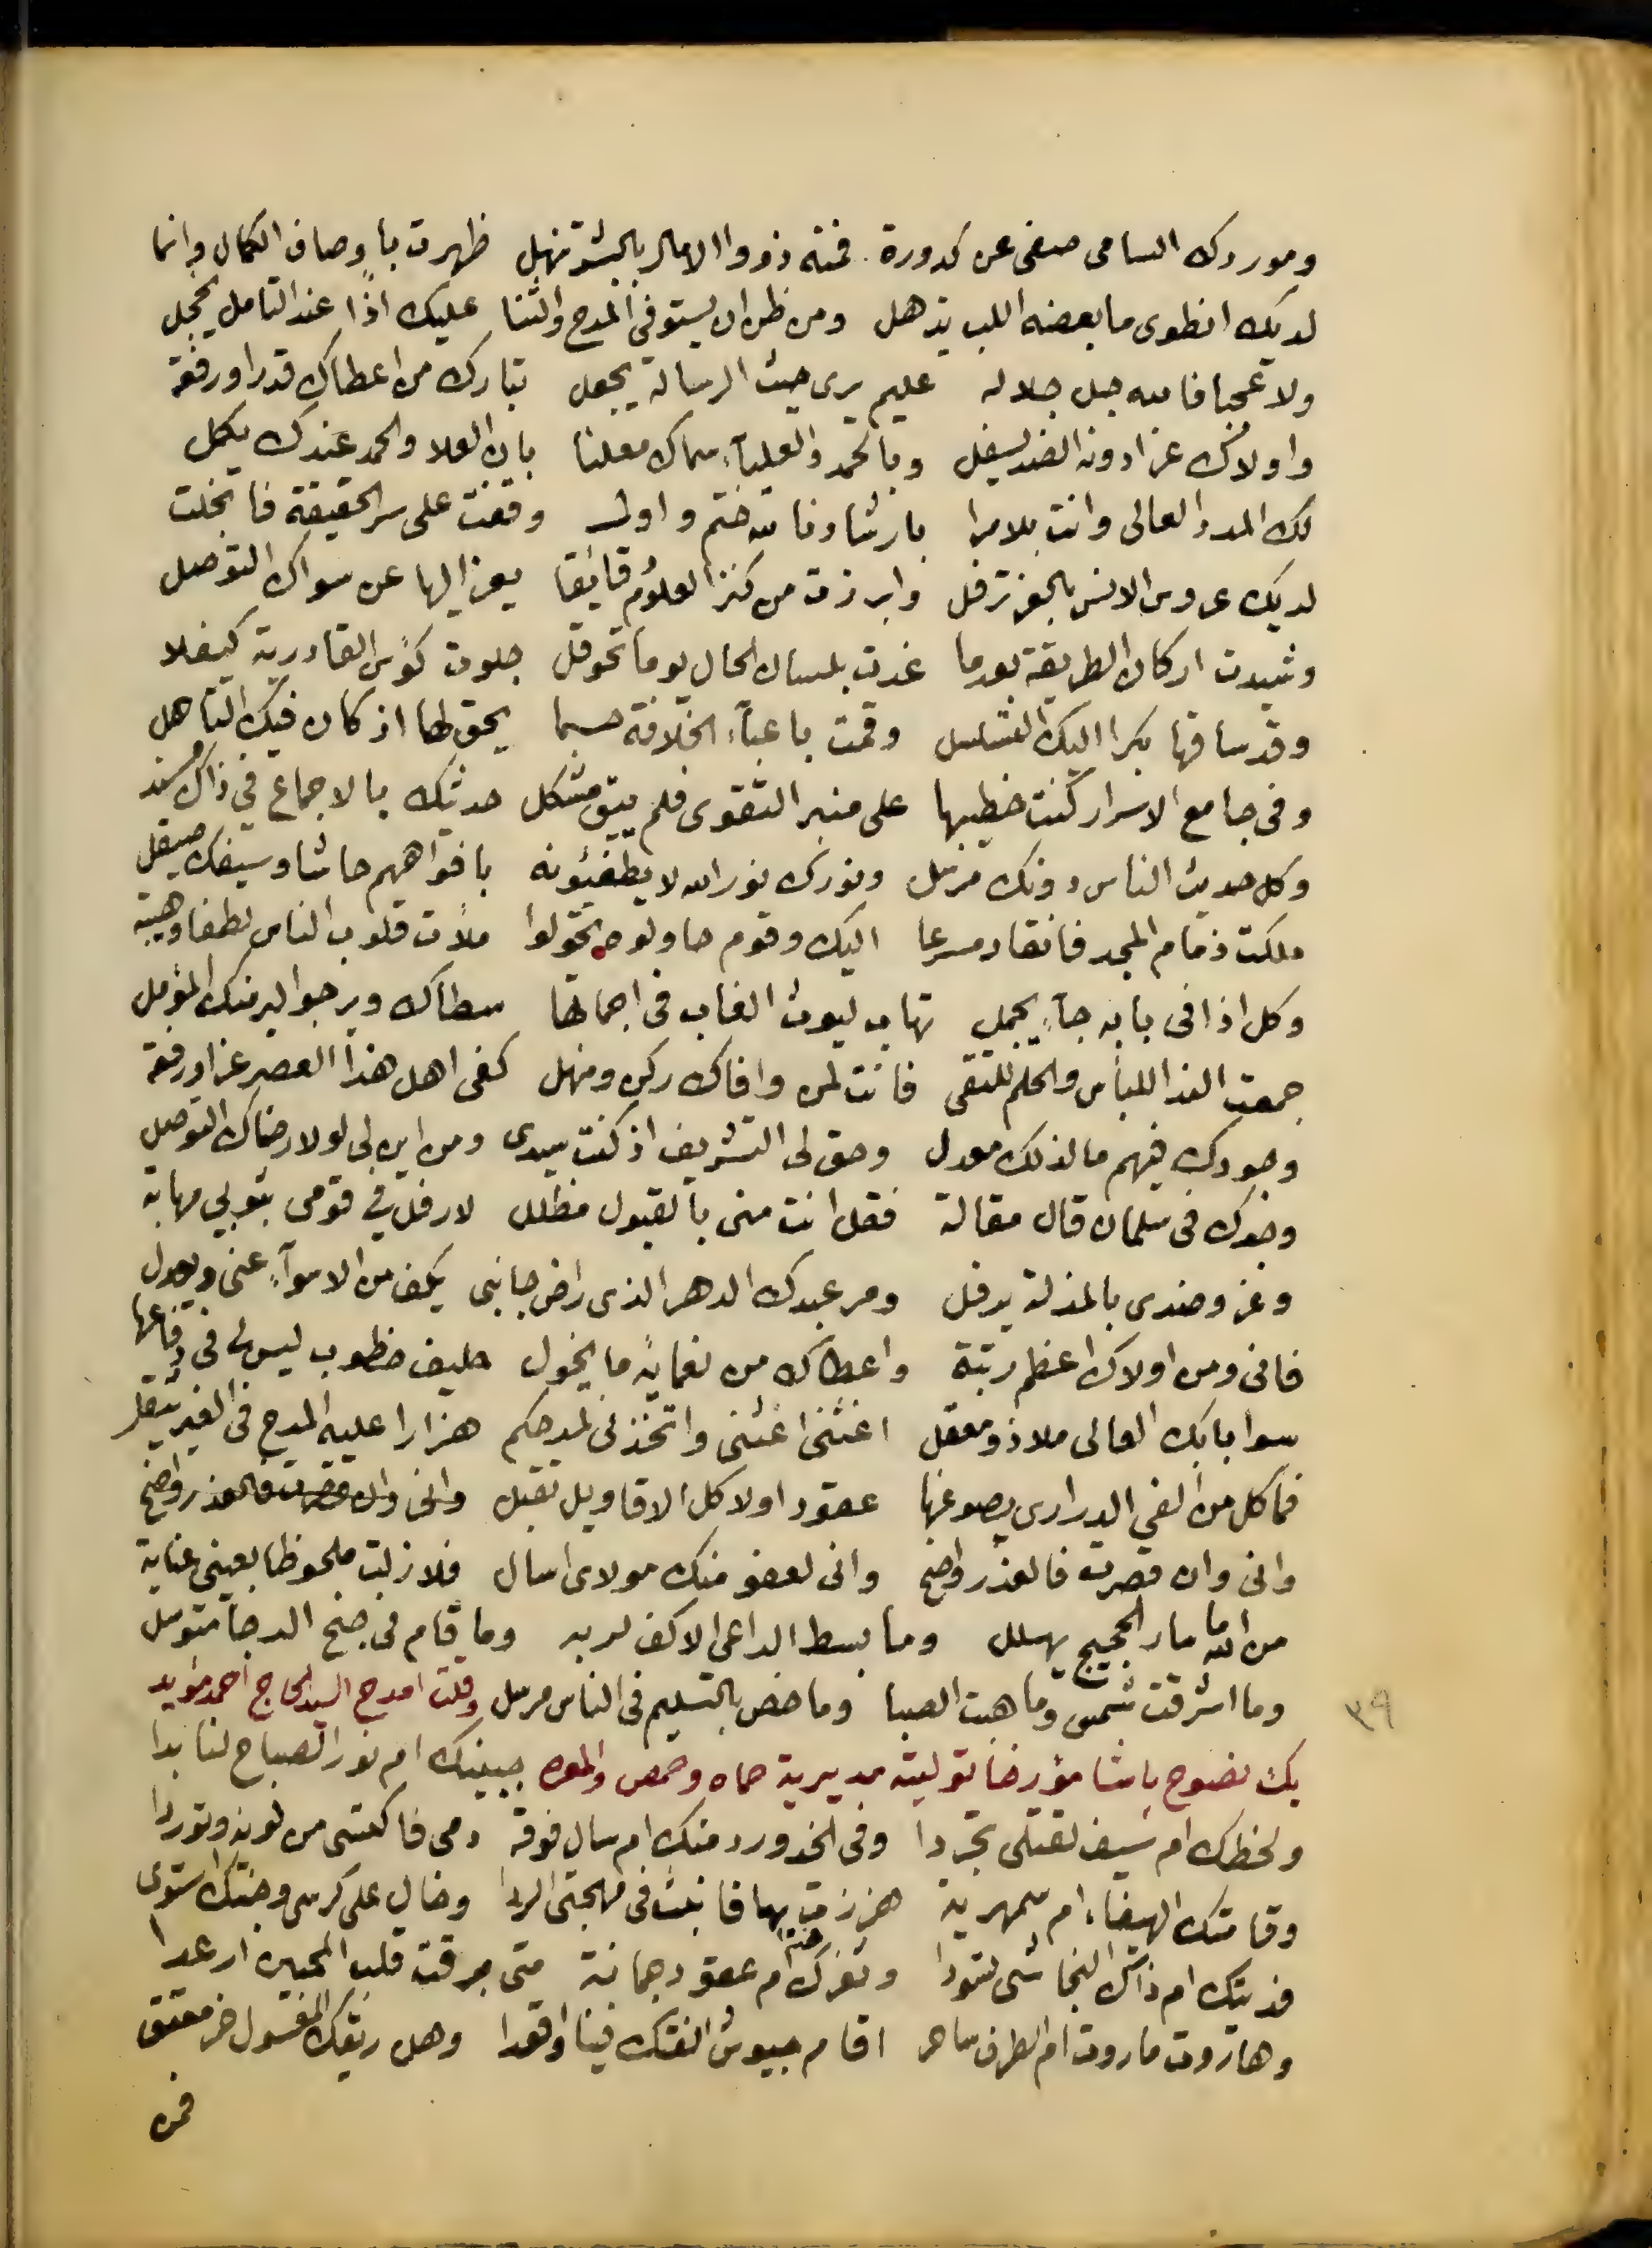 وموردك السامى صفى عن كدورة فمنه ذووا الامال بالبشر تنهل ظهرت باوصاف الكمال وانما
لديك انطوى ما بعضه اللب يذهل ومن ظن ان يستوفى المدح والثنا عليك اذا عند التامل يخجل
ولا عجبا فالله جل جلاله عليم يرى حيث الرسالة يجعل تبارك من اعطاك قدرا ورفعة
واولاك عزا دونه الضد يسفل وبالحمد والعلياء سماك معلنا بان العلا والحمد عندك يكمل
لك المدد العالى وانت بلا مرا بارشادنا لله ختم واول وقفت على سر الحقيقة فانجلت
لديك عروس الانس بالعز ترفل وابرزت من كنز العلوم قايقا يعز اليها عن سواك التوصل
وشيدت اركان الطريقة بعدما غدت بلسان الحال يوما تحوقل جلوت كؤس القادرية كيفلا
وقد ساقها بكرا اليك التسلسل وقمت باعباء الخلافة حسبما يحق لها اذ كان فيك التاهل
وفى جامع الاسرار كنت خطيبها على منبر التقوى فلم يبق مشكل حديثك بالاجماع فى ذاك مسند
وكل حديث الناس دونك مرسل ونورك نور الله لا يطفئونه بافواههم حاشا وسيفك صيقل
ملكت زمام المجد فانقاد مسرعا اليك وقوم حاولوه تحولوا ملأت قلوب الناس لطفا وهيبة
وكل اذا فى بابه جاء يجمل تهاب ليوث الغاب فى اجماتها سطاك ويرجو البر منك المؤمل
جمعت الندا للبأس والحلم للتقى فانت لمن وافاك ركن ومنهل كفى اهل هذا العصر عزا ورفعة
وجودك فيهم ما لذلك معدل وحق لى التشريف اذ كنت سيدى ومن اين لى لولا رضاك التوصل
وجدك فى سلمان قال مقالة فقل انت منى بالقبول مظلل لارفل فى قومى بثوبى مهابة
وعز وضدى بالمذلة يرفل ومر عبدك الدهر الذى راض جانبى يكف من الاسواء عنى ويعدل
فانى ومن اولاك اعظم رتبة واعطاك من نعمايه ما يخول حليف خطوب ليس لى فى دفاعها
سوا بابك العالى ملاذ ومعقل اغثنى اغثنى واتخذنى لمدحكم هزارا عليه المدح فى الغير يثقل
فما كل من الفى الدرارى يصوغها عقودا ولا كل الاقاويل تقبل وانى وان قصرت فالعذر واضح
وانى وان قصرت فالعذر واضح وانى لعفو منك مولاى اسال فلا زلت ملحوظا بعينى عناية
من الله ما سار الحجيج يهلل وما بسط الداعى الاكف لربه وما قام فى جنح الدجا متوسل
وما اشرقت شمس وما هبت الصبا وما خص بالتسليم فى الناس مرسل وقلت امدح السيد الحاج احمد مؤيد
بك نصوح باشا مؤرخا توليته مديرية حماه وحمص والمعره جبينك ام نور الصباح لنا بدا
ولحظك ام سيف لقتلى تجردا وفى الخد ورد منك ام سال فوقه دمى فاكتسى من لونه وتوردا
وقامتك الهيفاء ام سمهرية هززت بها فانبث فى مهجتى الردا وخال على كرسى وجنتك استوى
فديتك ام ذاك النجاشى تسودا وثغرك هذا ام عقود جمانة متى برقت قلب المحبين ارعدا
وهاروت ماروت ام الطرف ساحر اقام جيوش الفتك فينا واقعدا وهل ريقك المعسول خمر معتق
فمن
٣٩